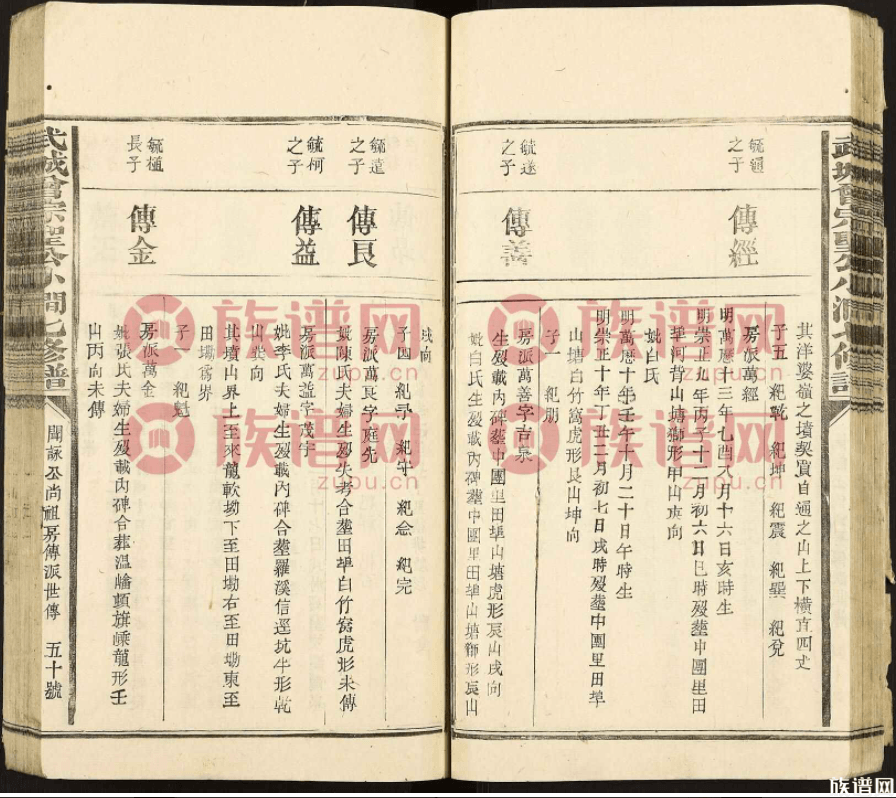 其洋婆嶺之墳契買自通之山上下橫直四丈
子五 紀乾 紀坤 紀震 紀巽 紀兌
毓通
之子
傳經
房派萬經
明萬歷十三年乙酉八月十六日亥時生
明崇正九年丙子十一月初六日巳時歿葬中團里田
垏河背山塘獅形甲山庚向
妣白氏
明萬歷十年壬午十月二十日午時生
明崇正十年丁丑二月初七日戌時歿葬中團里田垏
山塘白竹窩虎形艮山坤向
子一 紀朋
毓遂
之子
傳善
房派萬善字吉泉
生歿載內碑葬中團里田垏山塘虎形辰山戌向
妣白氏生歿載內碑葬中團里田垏山塘獅形辰山
戌向
子四 紀 紀守 紀念 紀完
毓進
之子
傳良
房派萬良字廷先
妣陳氏夫婦生歿失考合葬田垏白竹窩虎形未傳
毓柯
之子
傳益
房派萬益字茂宇
妣李氏夫婦生歿載內碑合葬羅溪信逕坑牛形乾
山巽向
其墳山界上至來龍軟坳下至田坳右至田坳東至
田塅為界
子一 紀魁
毓植
長子
傳金
房派萬金
妣張氏夫婦生歿載內碑合葬溫嶓頓旗嵊龍形壬
山丙向未傳
武城曾宗聖公小澗七修譜
聞詠公尚祖房傳派世傳 五十號
族谱网
zupu.cn
族谱网
zupu.cn
族谱网
zupu.cn
族谱网
zupu.cn
族谱网